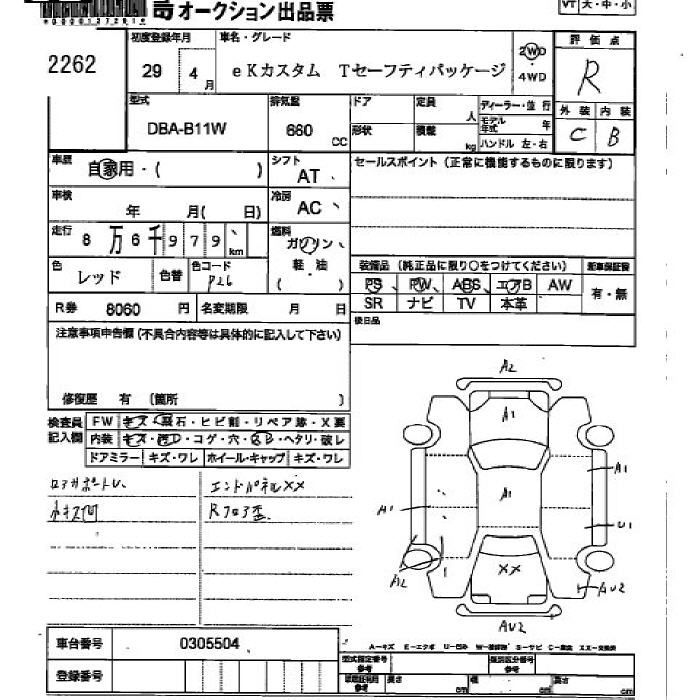 *0000127261*
オークション出品票
VT 大・中・小
2262
初度登録年月
29 4月
車名・グレード
eKカスタム Tセーフティパッケージ
2WD・4WD
評価点
R
型式
DBA-B11W
排気量
660 CC
ドア
形状
定員 人
積載 kg
ディーラー・並行
モデル年式 年
ハンドル 左・右
外装 内装
C B
車歴
自家用・( )
シフト
AT
セールスポイント(正常に機能するものに限ります)
車検
年 月( 日)
冷房
AC
走行
8万6千979 km
燃料
ガソリン
軽・油
( )
色
レッド
色替
色コード
P26
装備品(純正品に限り○をつけてください)
PS PW ABS エアB AW
SR ナビ TV 本革
新車保証書
有・無
R券 8060 円
名変期限 月 日
後日品
注意事項申告欄(不具合内容等は具体的に記入して下さい)
修復歴 有 (箇所 )
検査員記入欄
FW キズ・飛石・ヒビ割・リペア跡・X要
内装 キズ・汚レ・コゲ・穴・・ヘタリ・破レ
ドアミラー キズ・ワレ ホイール・キャップ キズ・ワレ
ロアサポートレ、
エンドパネルXX
小キズ凹
Rフロア歪
A2
A1
A1
A1
A1
U1
A2
XX
AU2
AU2
車台番号 0305504
登録番号
A－キズ E－エクボ U－凹み W－補修跡 S－サビ C－腐食 XX－交換済
型式指定番号 参考
類別区分番号 参考
長さ cm
幅 cm
高さ cm